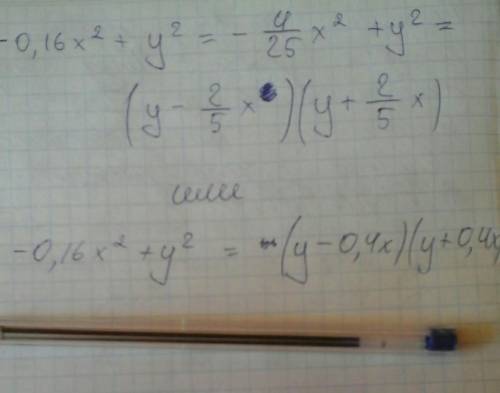 -0,16x² + y² = - 4/25 x² + y² =
(y - 2/5 x)(y + 2/5 x)
или
-0,16x² + y² = (y - 0,4x)(y + 0,4x